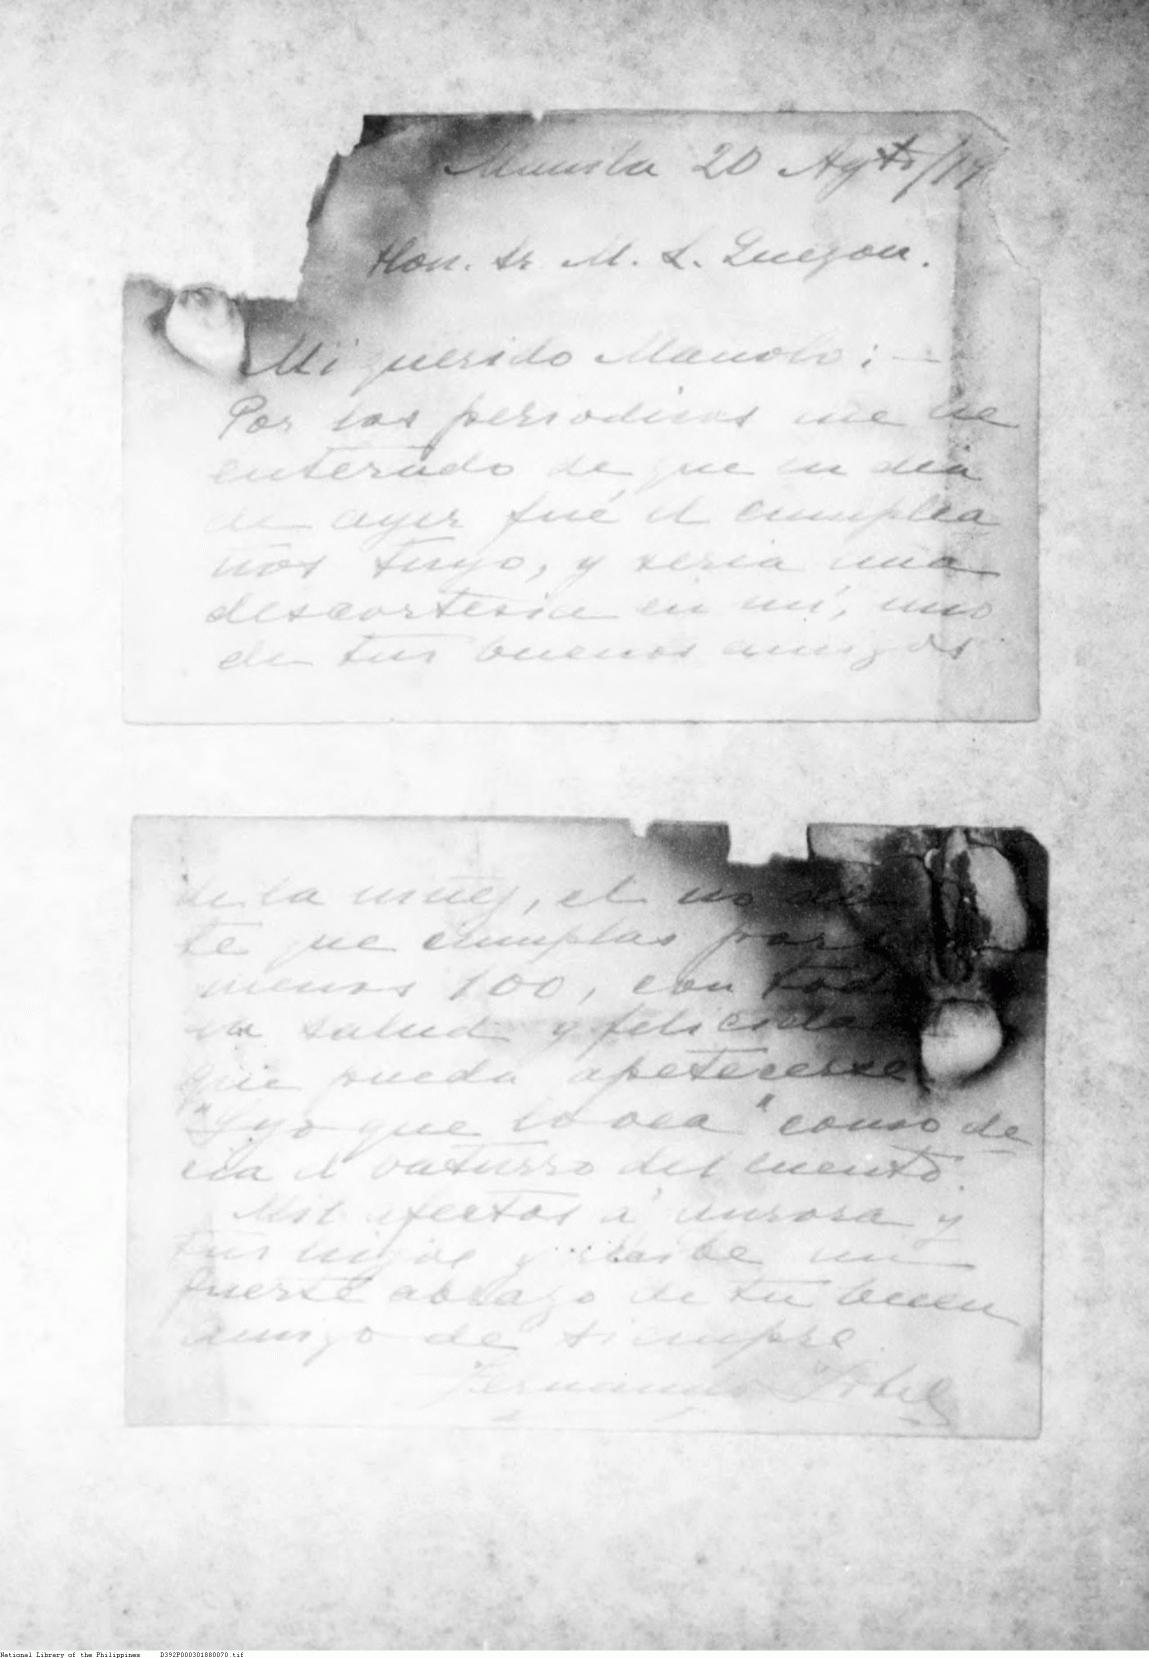 Manila 20 Agto/19
Hon. Sr. M. L. Quezon.
Mi querido Manolo: —
Por los periodicos me he
enterado de que en dia
de ayer fué el cumplea
ños tuyo, y seria una
descortesia en mi, uno
de tus buenos amigos
de la niñez, el no de
te que cumplas por
menos 100, con toda
la salud y felicidad
que pueda apetecerse
"y yo que lo vea" como de
cia el baturro del cuento.
Mil afectos á Aurora y
tus hijos y recibe un
fuerte abrazo de tu buen
amigo de siempre
Fernando Zobel
National Library of the Philippines D392P000301880070.tif